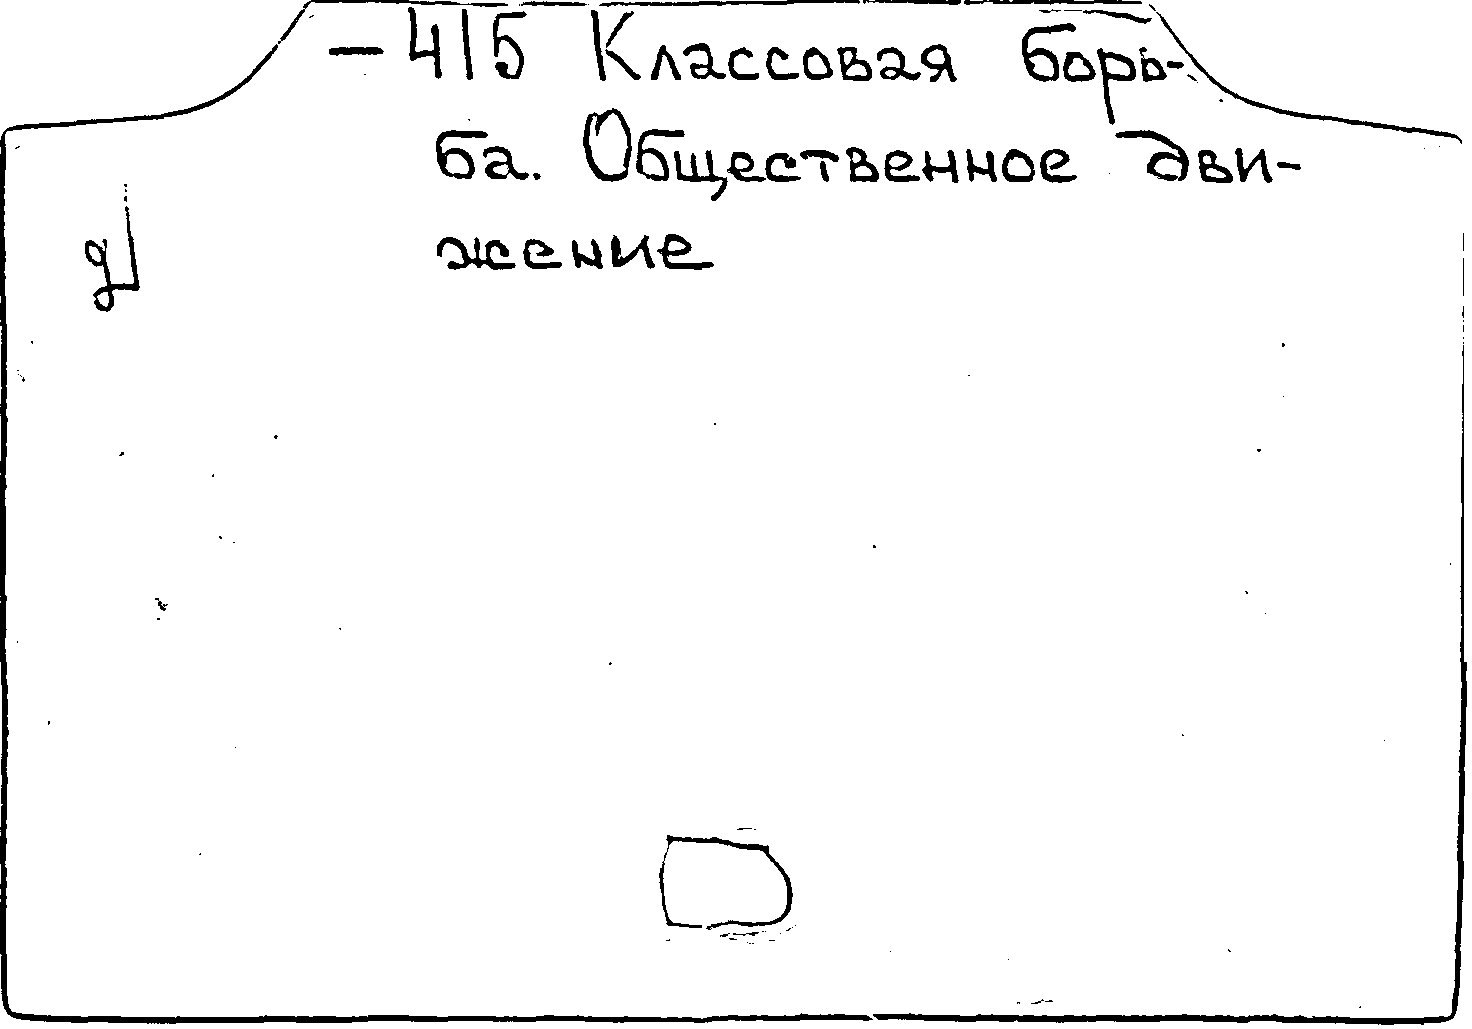 — 415 Классовая борь-
ба. Общественное дви-
жение